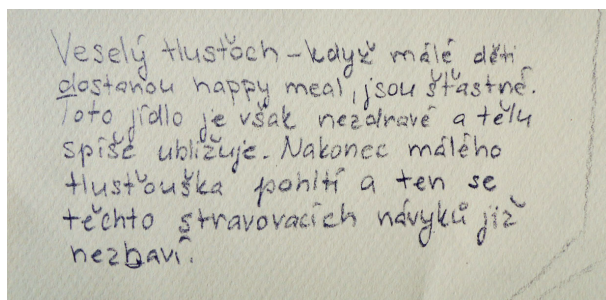 Veselý tlusťoch – když málé děti
dostanou happy meal, jsou šťastné.
Toto jídlo je však nezdravé a tělu
spíše ubližuje. Nakonec málého
tlusťouška pohltí a ten se
těchto stravovacích návyků již
nezbaví.